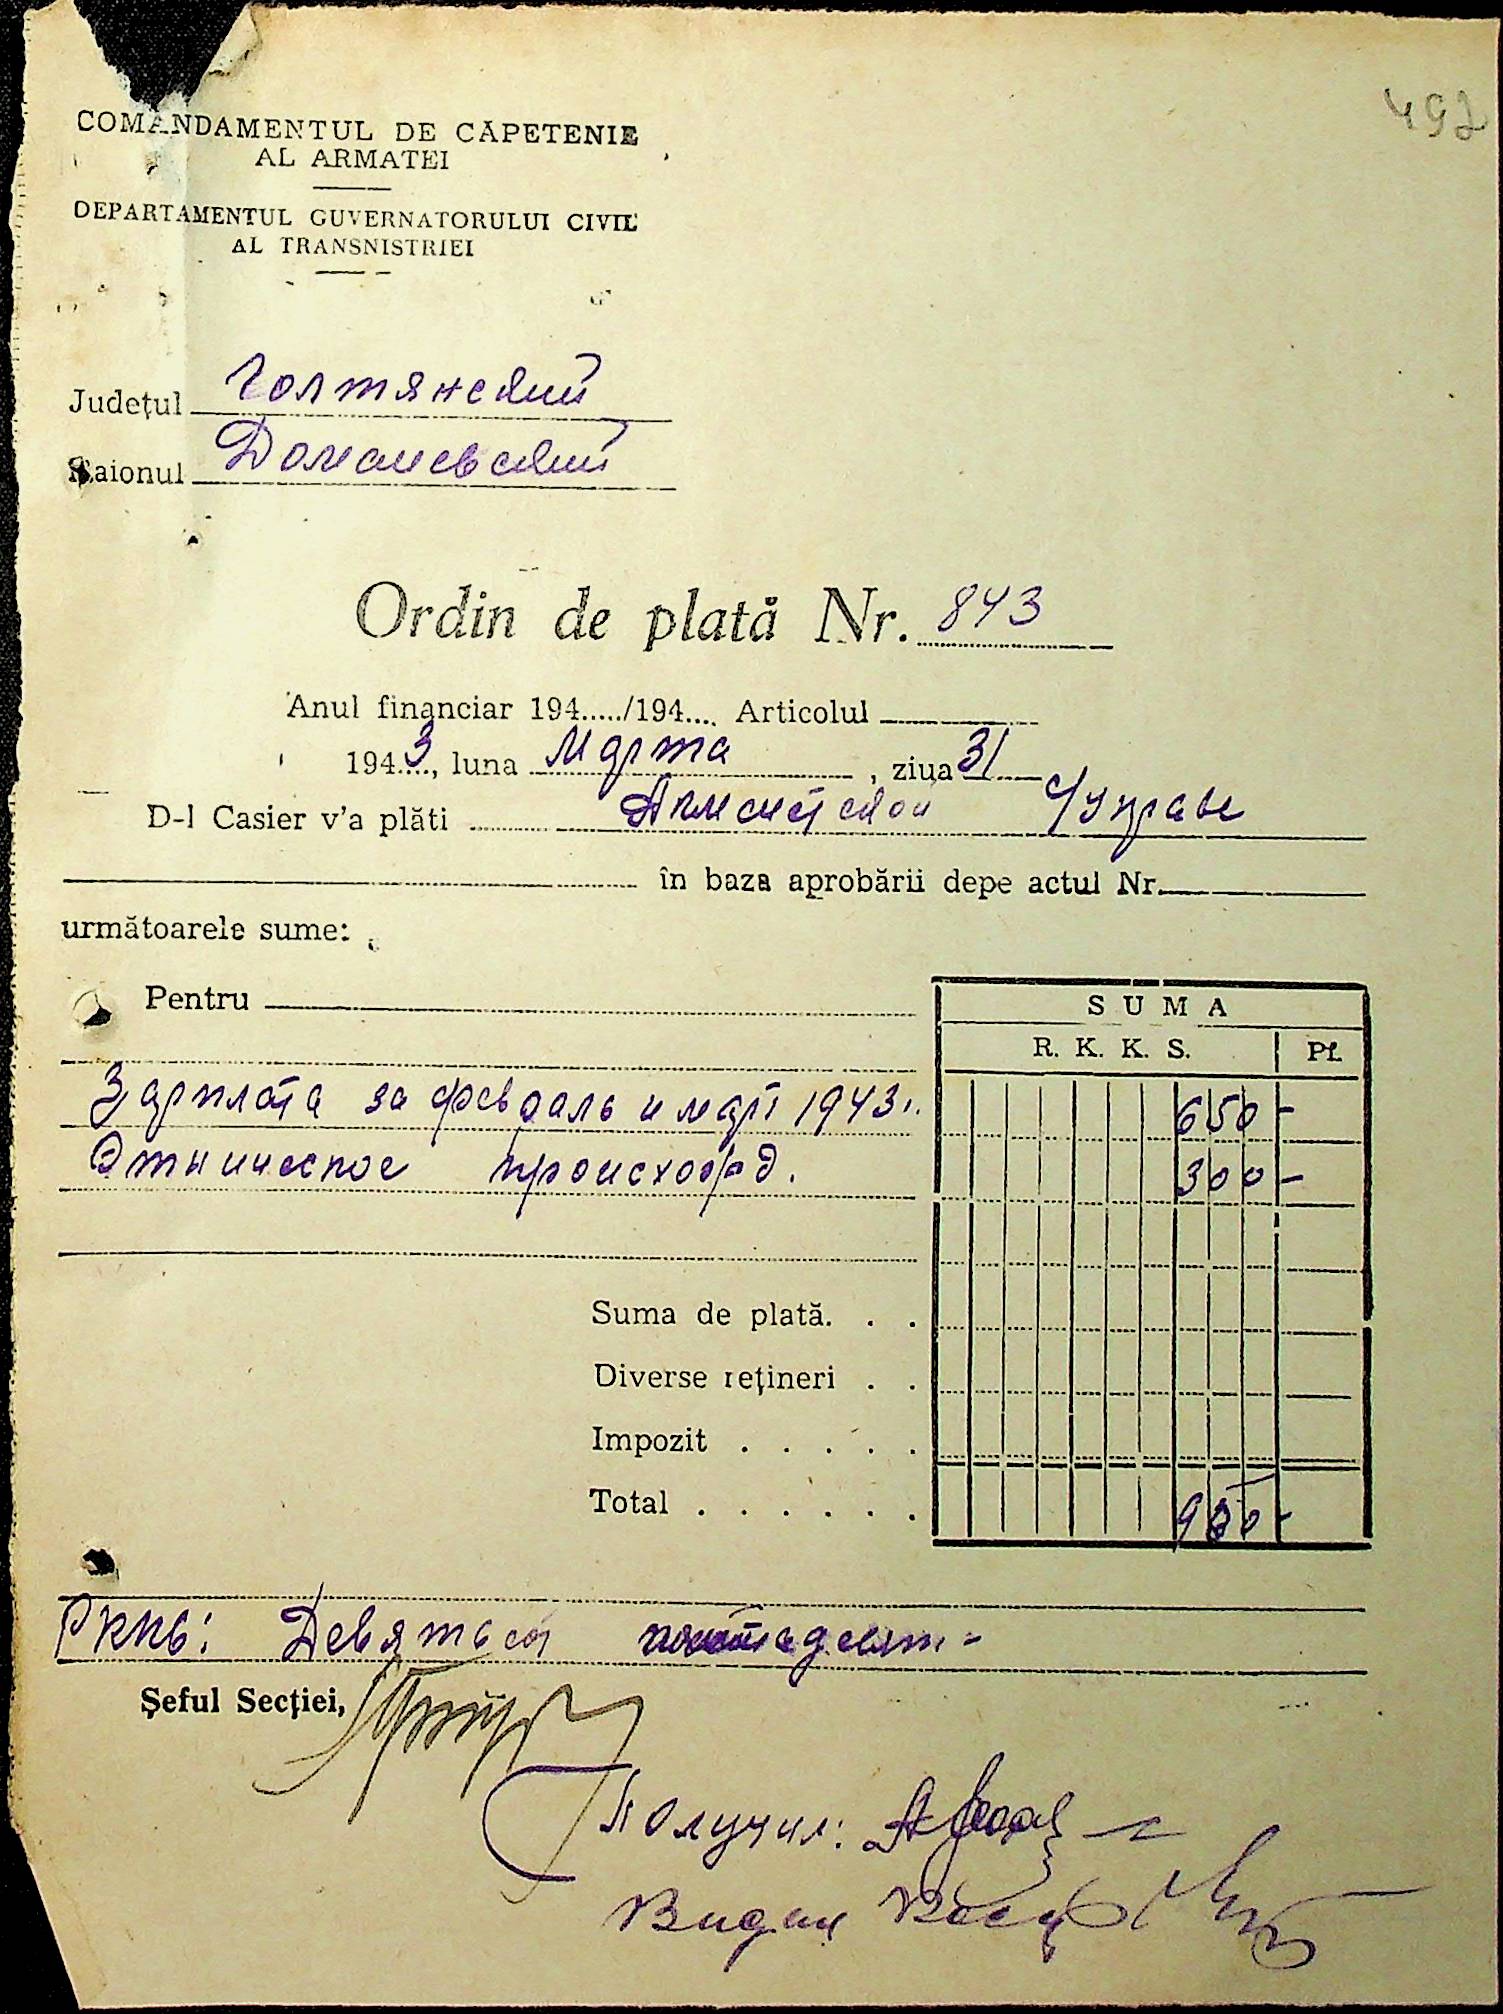 492
COMANDAMENTUL DE CĂPETENIE
AL ARMATEI
DEPARTAMENTUL GUVERNATORULUI CIVIL
AL TRANSNISTRIEI
Județul Голтянский
Raionul Доманевский
Ordin de plată Nr. 843
Anul financiar 194...../194.... Articolul
1943, luna Марта, ziua 31
D-l Casier v'a plăti Акмечетской С/управе
în baza aprobării depe actul Nr.
următoarele sume:
Pentru
SUMA
R. K. K. S. Pf.
Зарплата за февраль и март 1943 г. 650 -
Этническое происхожд. 300 -
Suma de plată. . .
Diverse rețineri . .
Impozit . . . . .
Total . . . . . . 950 -
Рккв: Девятьсот пятьдесят -
Șeful Secției,
Получил:
Видал